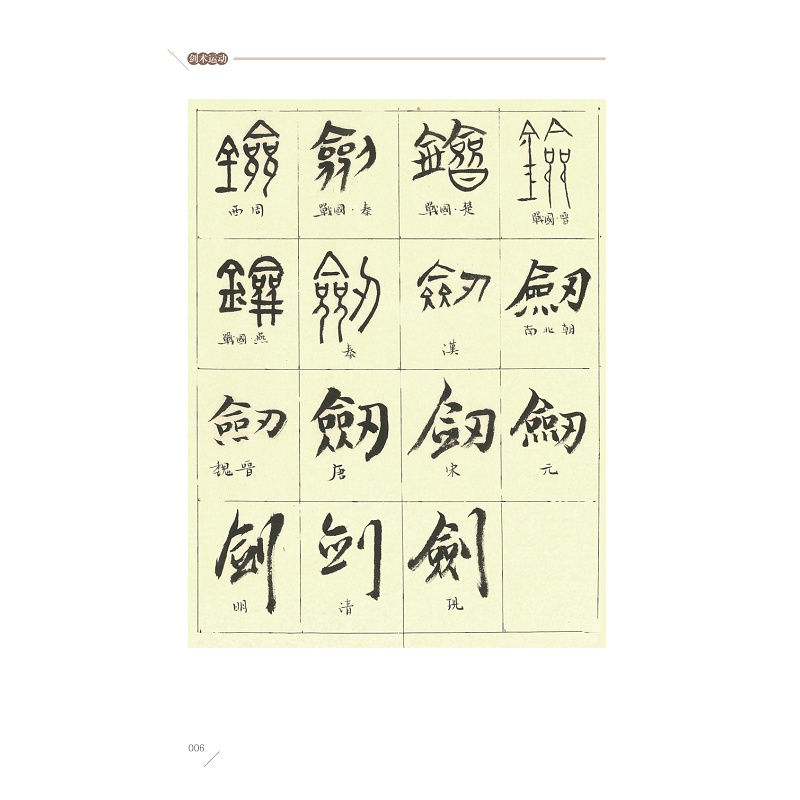 剑术运动
鐱 劍 鐱 鐱
西周 戰國·秦 戰國·楚 戰國·晉
鐱 劒 劒 劒
戰國·燕 秦 漢 南北朝
劒 劒 劒 劒
魏晉 唐 宋 元
剑 剑 劍
明 清 現
006